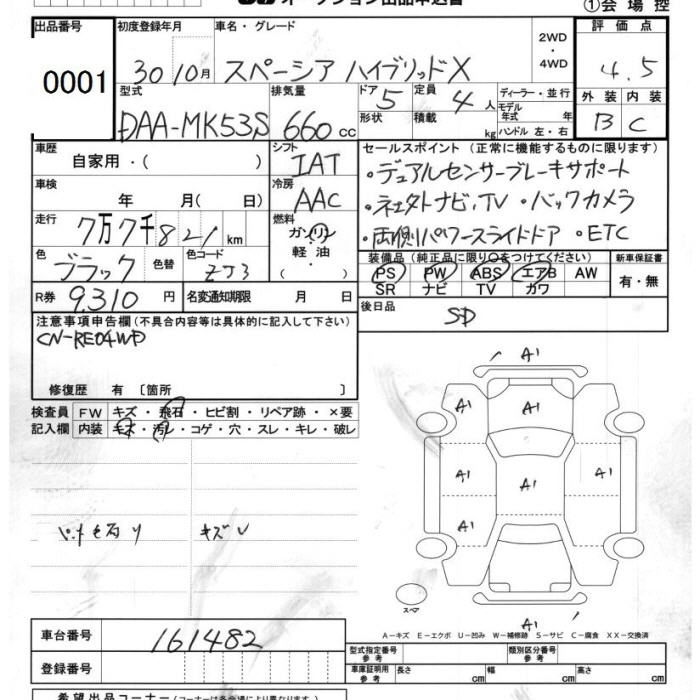 オークション出品申込書
①会場控
出品番号 初度登録年月 車名・グレード 2WD ・ 4WD 評価点
0001 30 10月 スペーシア ハイブリッドX 4.5
型式 排気量 ドア 5 定員 4人 ディーラー・並行 外装 内装
DAA-MK53S 660 cc 形状 積載 kg モデル年式 年 ハンドル 左・右 B C
車歴 自家用・( ) シフト IAT セールスポイント(正常に機能するものに限ります)
・デュアルセンサーブレーキサポート
車検 年 月( 日) 冷房 AAC
・社外ナビ,TV ・バックカメラ
走行 7万7千821 km 燃料 ガソリン・軽油・
・両側パワースライドドア ・ETC
色 ブラック 色替 色コード ZJ3
装備品(純正品に限り○をつけてください) 新車保証書
PS PW ABS エアB AW 有・無
SR ナビ TV カワ
R券 9,310円 名変通知期限 月 日
後日品 SD
注意事項申告欄(不具合内容等は具体的に記入して下さい)
CN-RE04WD
修復歴 有 〔箇所 〕
検査員 FW キズ・飛石・ヒビ割・リペア跡・×要
記入欄 内装 キズ・汚レ・コゲ・穴・スレ・キレ・破レ
A1
A1 A1 A1
A1 A1 A1
A1
キズU
スペア
A1
A-キズ E-エクボ U-凹み W-補修跡 S-サビ C-腐食 XX-交換済
車台番号 161482
登録番号
型式指定番号 参考 類別区分番号 参考
車庫証明用 参考 長さ cm 幅 cm 高さ cm
希望出品コーナー(コーナーは各会場により異なります)